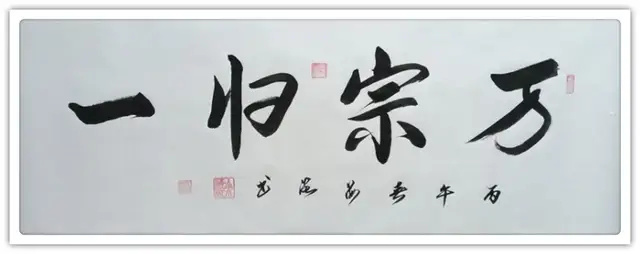 万宗归一
丙午春